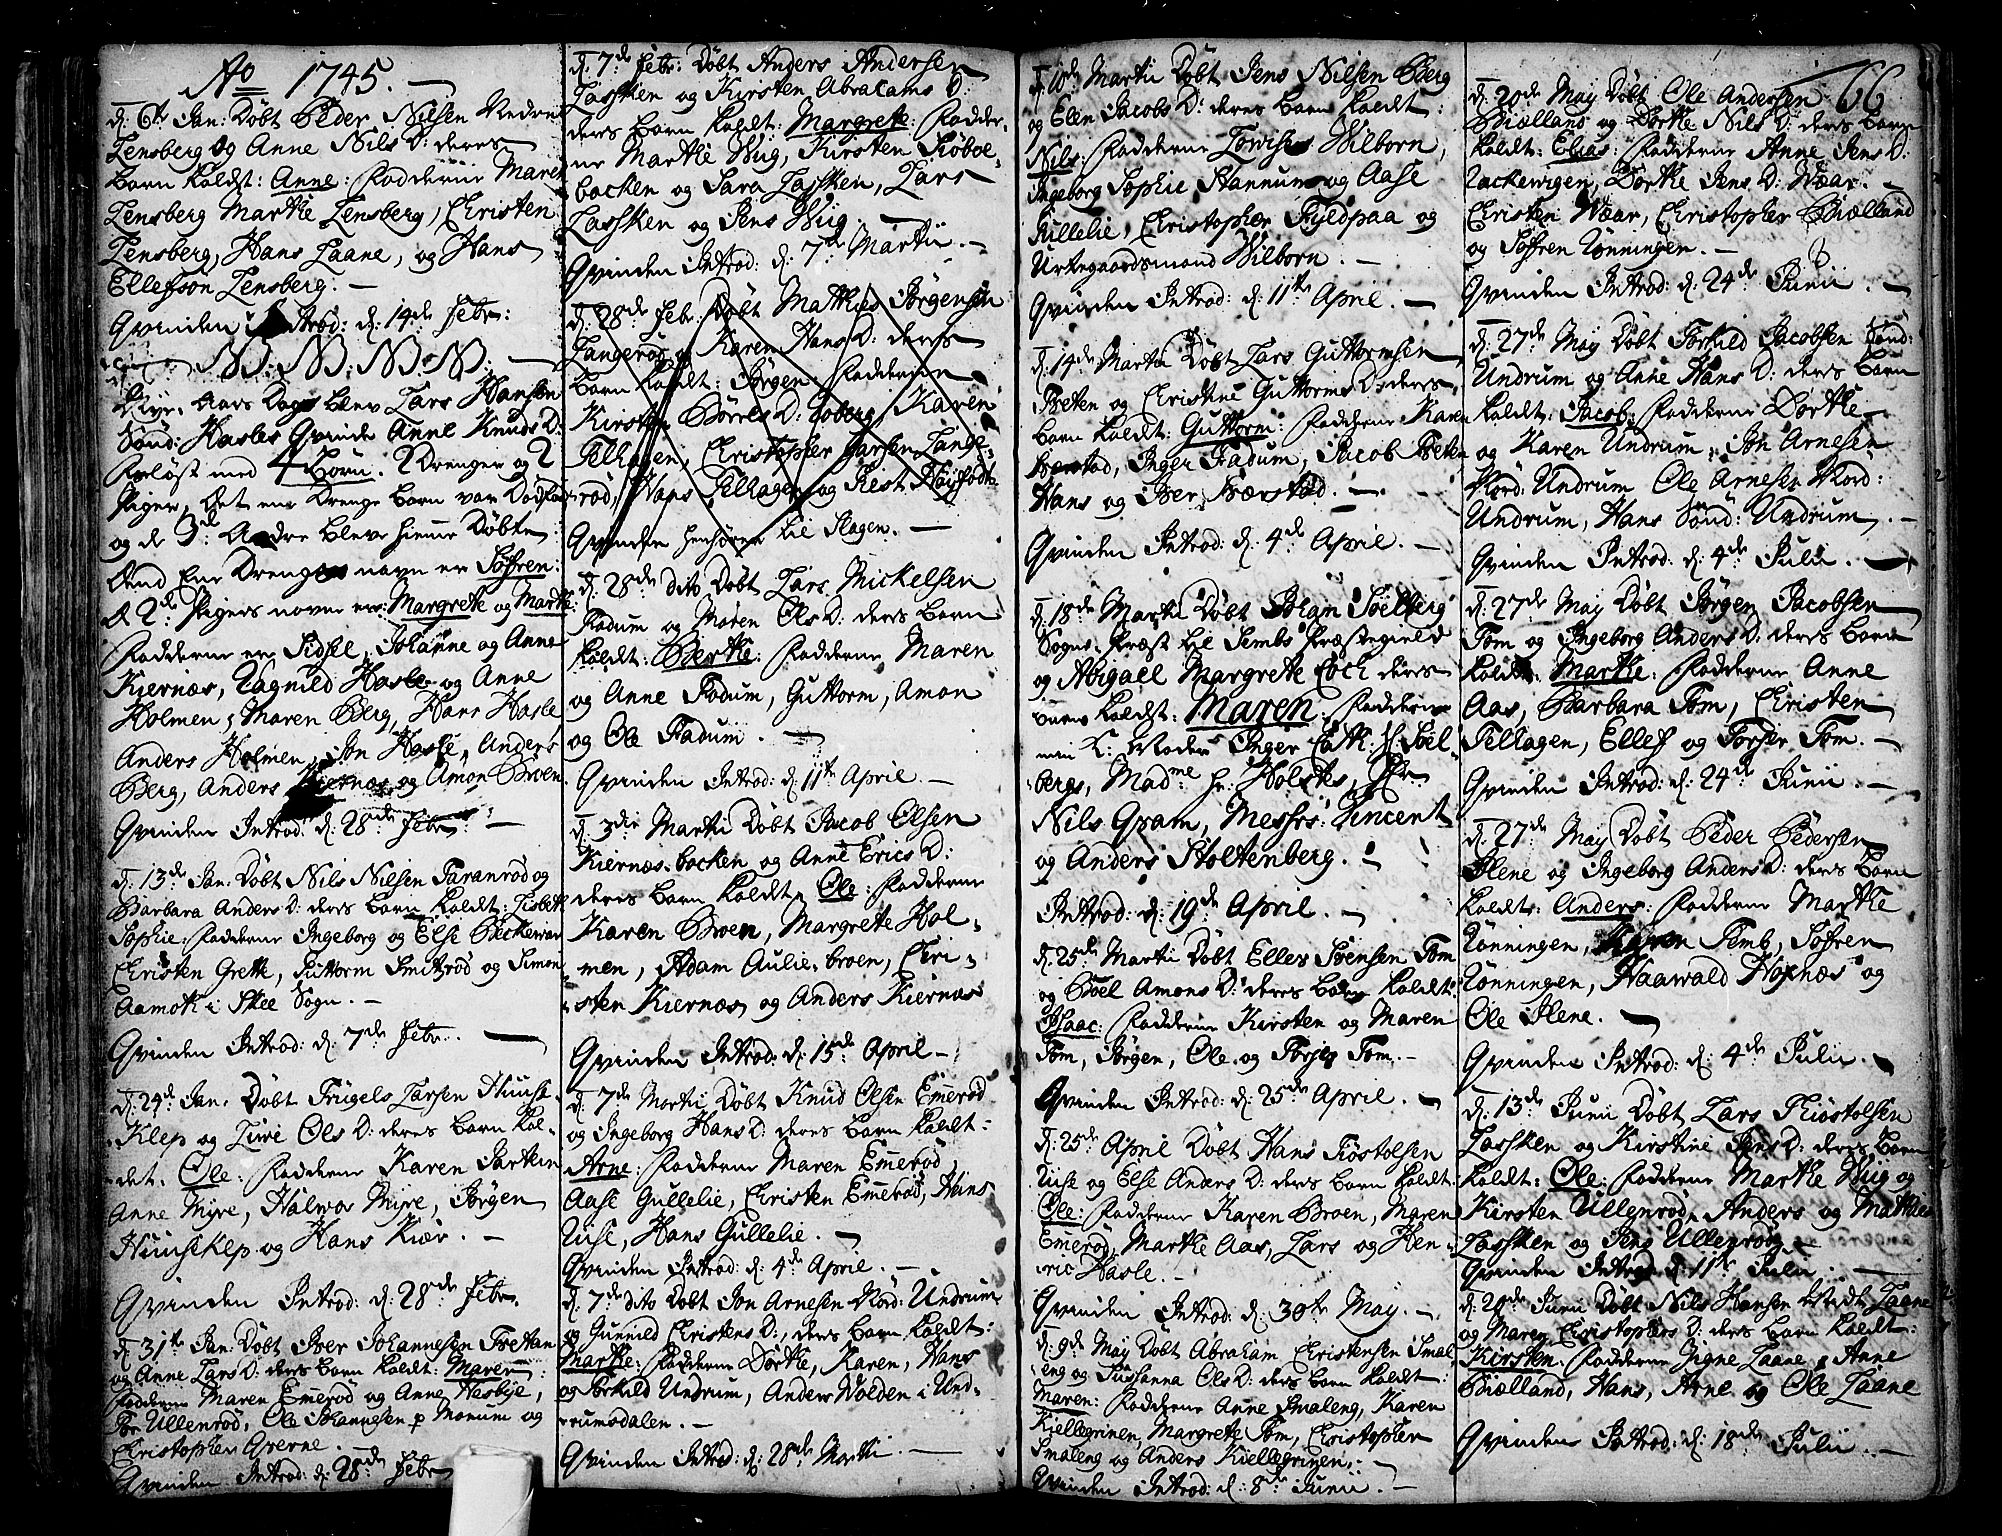 No 1745.
d. 6te Jan: Døbt Peder Nilsen Nedre
Lensberg og Anne Nils D: deres
barn kaldt: Anne: Fadderne Maren
Lensberg Marthe Lensberg, Christen
Lensberg, Hans Laane, og Hans
Ellefson Lensberg.
Qvinden Introd: d. 14de Febr:
NB. NB. NB. NB.
Nyr Aars Dag blev Lars Hansen
Sønd: Hasles Qvinde Anne Knuds D:
forløst med 4 børn. 2 Drenger og 2
Piger, det ene Drenge barn var Dødfød
og de 3de Andre blev hieme Døbte:
Dend Ene Drenges navn er Søfren:
d 2de Pigers navne er: Margrete og Marthe:
Fadderne er Sidsel, Johanne og Anne
Kiernæs, Ragnild Hasle og Anne
Holmen, Maren Berg, Hans Hasle
Anders Holmen, Jon Hasle, Anders
Berg, Anders Kiernæs og Amon Broen
Qvinden Introd: d: 28de Febr:
d. 13de Jan: Døbt Nils Nilsen Faranrød og
Barbara Anders D: deres barn kaldt: Lisbeth
Sophie: Fadderne Ingeborg og Else Beckewar
Christen Grette, Guttorm Smitsrød og Simon
Aamot i Skee Sogn.
Qvinden Introd: d: 7de Febr.
d. 24de Jan. Døbt Trugels Larsen Huuse-
Klep og Live Ols D: deres barn kal-
det. Ole: Fadderne Karen Jarteen
Anne Myre, Halwor Myre, Jørgen
Huuseklep og Hans Kiær.
Qvinden Introd: d: 28de Febr.
d. 31te Jan: Døbt Iver Johannesen Tretan
og Anne Lars D: deres barn kaldt: Maren:
Fadderne Maren Emerød og Anne Nesbye,
Jon Ullenrød, Ole Johannesen p Monum og
Christopher Qverne.
Qvinden Introd: d. 28de Febr
d: 7de Febr: Døbt Anders Andersen
Lassken og Kirsten Abracams D:
deres barn kaldt: Margrete: Fadder-
ne Marthe Wiig, Kirsten Søboe-
backen og Sara Lassken, Lars
Lassken og Jens Wiig.
Qvinden Introd: d: 7de Martii.
d. 28de Febr: Døbt Mathias Jørgensen
Langerød og Karen Hans D: deres
barn kaldt: Jørgen. Fadderne
Kirsten Børres D: Roberg, Karen
Telhagen, Christopher Larsen Lange-
rød, Hans Telhagen og Krist. Høysfodt
Qvinden henhører til Slagen.
d. 28de dito Døbt Lars Mickelsen
Fadum og Maren Ols D: deres barn
kaldt: Berthe: Fadderne Maren
og Anne Fadum, Guttorm, Amon
og Ole Fadum.
Qvinden Introd: d: 11te April.
d. 3die Martii Døbt Jacob Olsen
Kiernæs backen og Anne Erics D:
deres barn kaldt. Ole: Fadderne
Karen Broen, Margrete Hol-
men, Adam Aulie-broen, Chri-
sten Kiernæs og Anders Kiernæs
Qvinden Introd: d: 15de April
d. 7de Martii Døbt Knud Olsen Emerød
og Ingeborg Hans D: deres barn kaldt:
Arne: Fadderne Maren Emerød
Aase Gullelie, Christen Emerød, Hans
Riise, Hans Gullelie.
Qvinden Introd: d: 4de April.
d. 7de dito Døbt Jon Arnesen Nord: Undrum
og Gunnild Christens D:, deres barn kaldt:
Marthe: Fadderne Dorthe, Karen, Hans
og Torkild Undrum, Anders Wolden i Und-
rumsdalen.
Qvinden Introd: d: 28de Martii.
d. 10de Martii Døbt Jens Nilsen Berg
og Elen Jacobs D: deres barn kaldt:
Nils: Fadderne Lowise Wilborn,
Ingeborg Sophie Hannum og Aase
Gullelie, Christopher Fyldpaa og
Urtegaardsmand Wilborn.
Qvinden Introd: d: 11te April.
d. 14de Martii Døbt Lars Guttormsen
Treten og Christine Guttorms D: deres
barn kaldt: Guttorm: Fadderne Karen
Bærstad, Inger Fadum, Jacob Treten
Hans og Iver Bærstad.
Qvinden Introd: d. 4de April.
d. 18de Martii Døbt Johan Søelberg
Sogne-Præst til Sembs Præstegield
og Abigael Margrete Coch deres
barn kaldt: Maren: Fadderne
min K: Moder Inger Cath: Søel-
bergs, Madme Hr: Holsts, Hr
Nils Gram, Messrs: Vincent
og Anders Stoltenberg.
Introd: d. 19de April.
d. 25de Martii Døbt Ellef Sørensen Tom
og Boel Amons D: deres barn kaldt:
Isaac: Fadderne Kirsten og Maren
Tom, Jørgen, Ole og Torger Tom.
Qvinden Introd: d. 25de April.
d. 25de April Døbt Hans Giøstolsen
Riise og Else Anders D: deres barn kaldt:
Ole: Fadderne Karen Broen, Maren
Emerød, Marthe Aas, Lars og Hen-
ric Hasle.
Qvinden Introd: d: 30te May.
d. 9de May Døbt Abraham Christensen Smal
eng og Sussanna Ols D: deres barn kaldt:
Maren: Fadderne Anne Smaleng, Karen
Kiellegrinen, Margrete Tom, Christopher
Smaleng og Anders Kiellegrinen.
Qvinden Introd: d: 8de Junii.
66
d. 20de May Døbt Ole Andersen
Biælland og Dorthe Nils D: deres barn
kaldt: Elias: Fadderne Anne Jens D:
Rackewigen, Dorthe Jens D: Wæar.
Christen Wæar, Christopher Biælland
og Søfren Rønningen.
Qvinden Introd: d: 24de Junii.
d. 27de May Døbt Torkild Jacobsen Sønd:
Undrum og Anne Hans D: deres barn
kaldt: Jacob: Fadderne Dorthe
og Karen Undrum, Jon Arnesen
Nord: Undrum Ole Arnesen Nord:
Undrum, Hans Sønd: Undrum.
Qvinden Introd: d: 4de Julii.
d. 27de May Døbt Jørgen Jacobsen
Tom og Ingeborg Anders D: deres barn
kaldt: Marthe: Fadderne Anne
Aas, Barbara Tom, Christen
Telhagen, Ellef og Torger Tom.
Qvinden Introd: d: 24de Junii.
d. 27de May Døbt Peder Pedersen
Ilene og Ingeborg Anders D: deres barn
kaldt: Anders: Fadderne Marthe
Rønningen, Karen Semb, Søfren
Rønningen, Haawald Hoxnæs og
Ole Ilene.
Qvinden Introd: d: 4de Julii.
d. 13de Junii Døbt Lars Giøstolsen
Lassken og Kirstine Jens D: deres barn
kaldt: Ole: Fadderne Marthe Wiig og
Kirsten Ullenrød, Anders og Mathias
Lassken og Jens Ullenrød.
Qvinden Introd: d. 11te Julii.
d. 20de Junii Døbt Nils Hansen Laane
og Maren Christophers D: deres barn kaldt:
Kirsten: Fadderne Signe Laane, Anne
Biælland, Hans, Arne og Ole Laane
Qvinden Introd: d: 18de Julii.